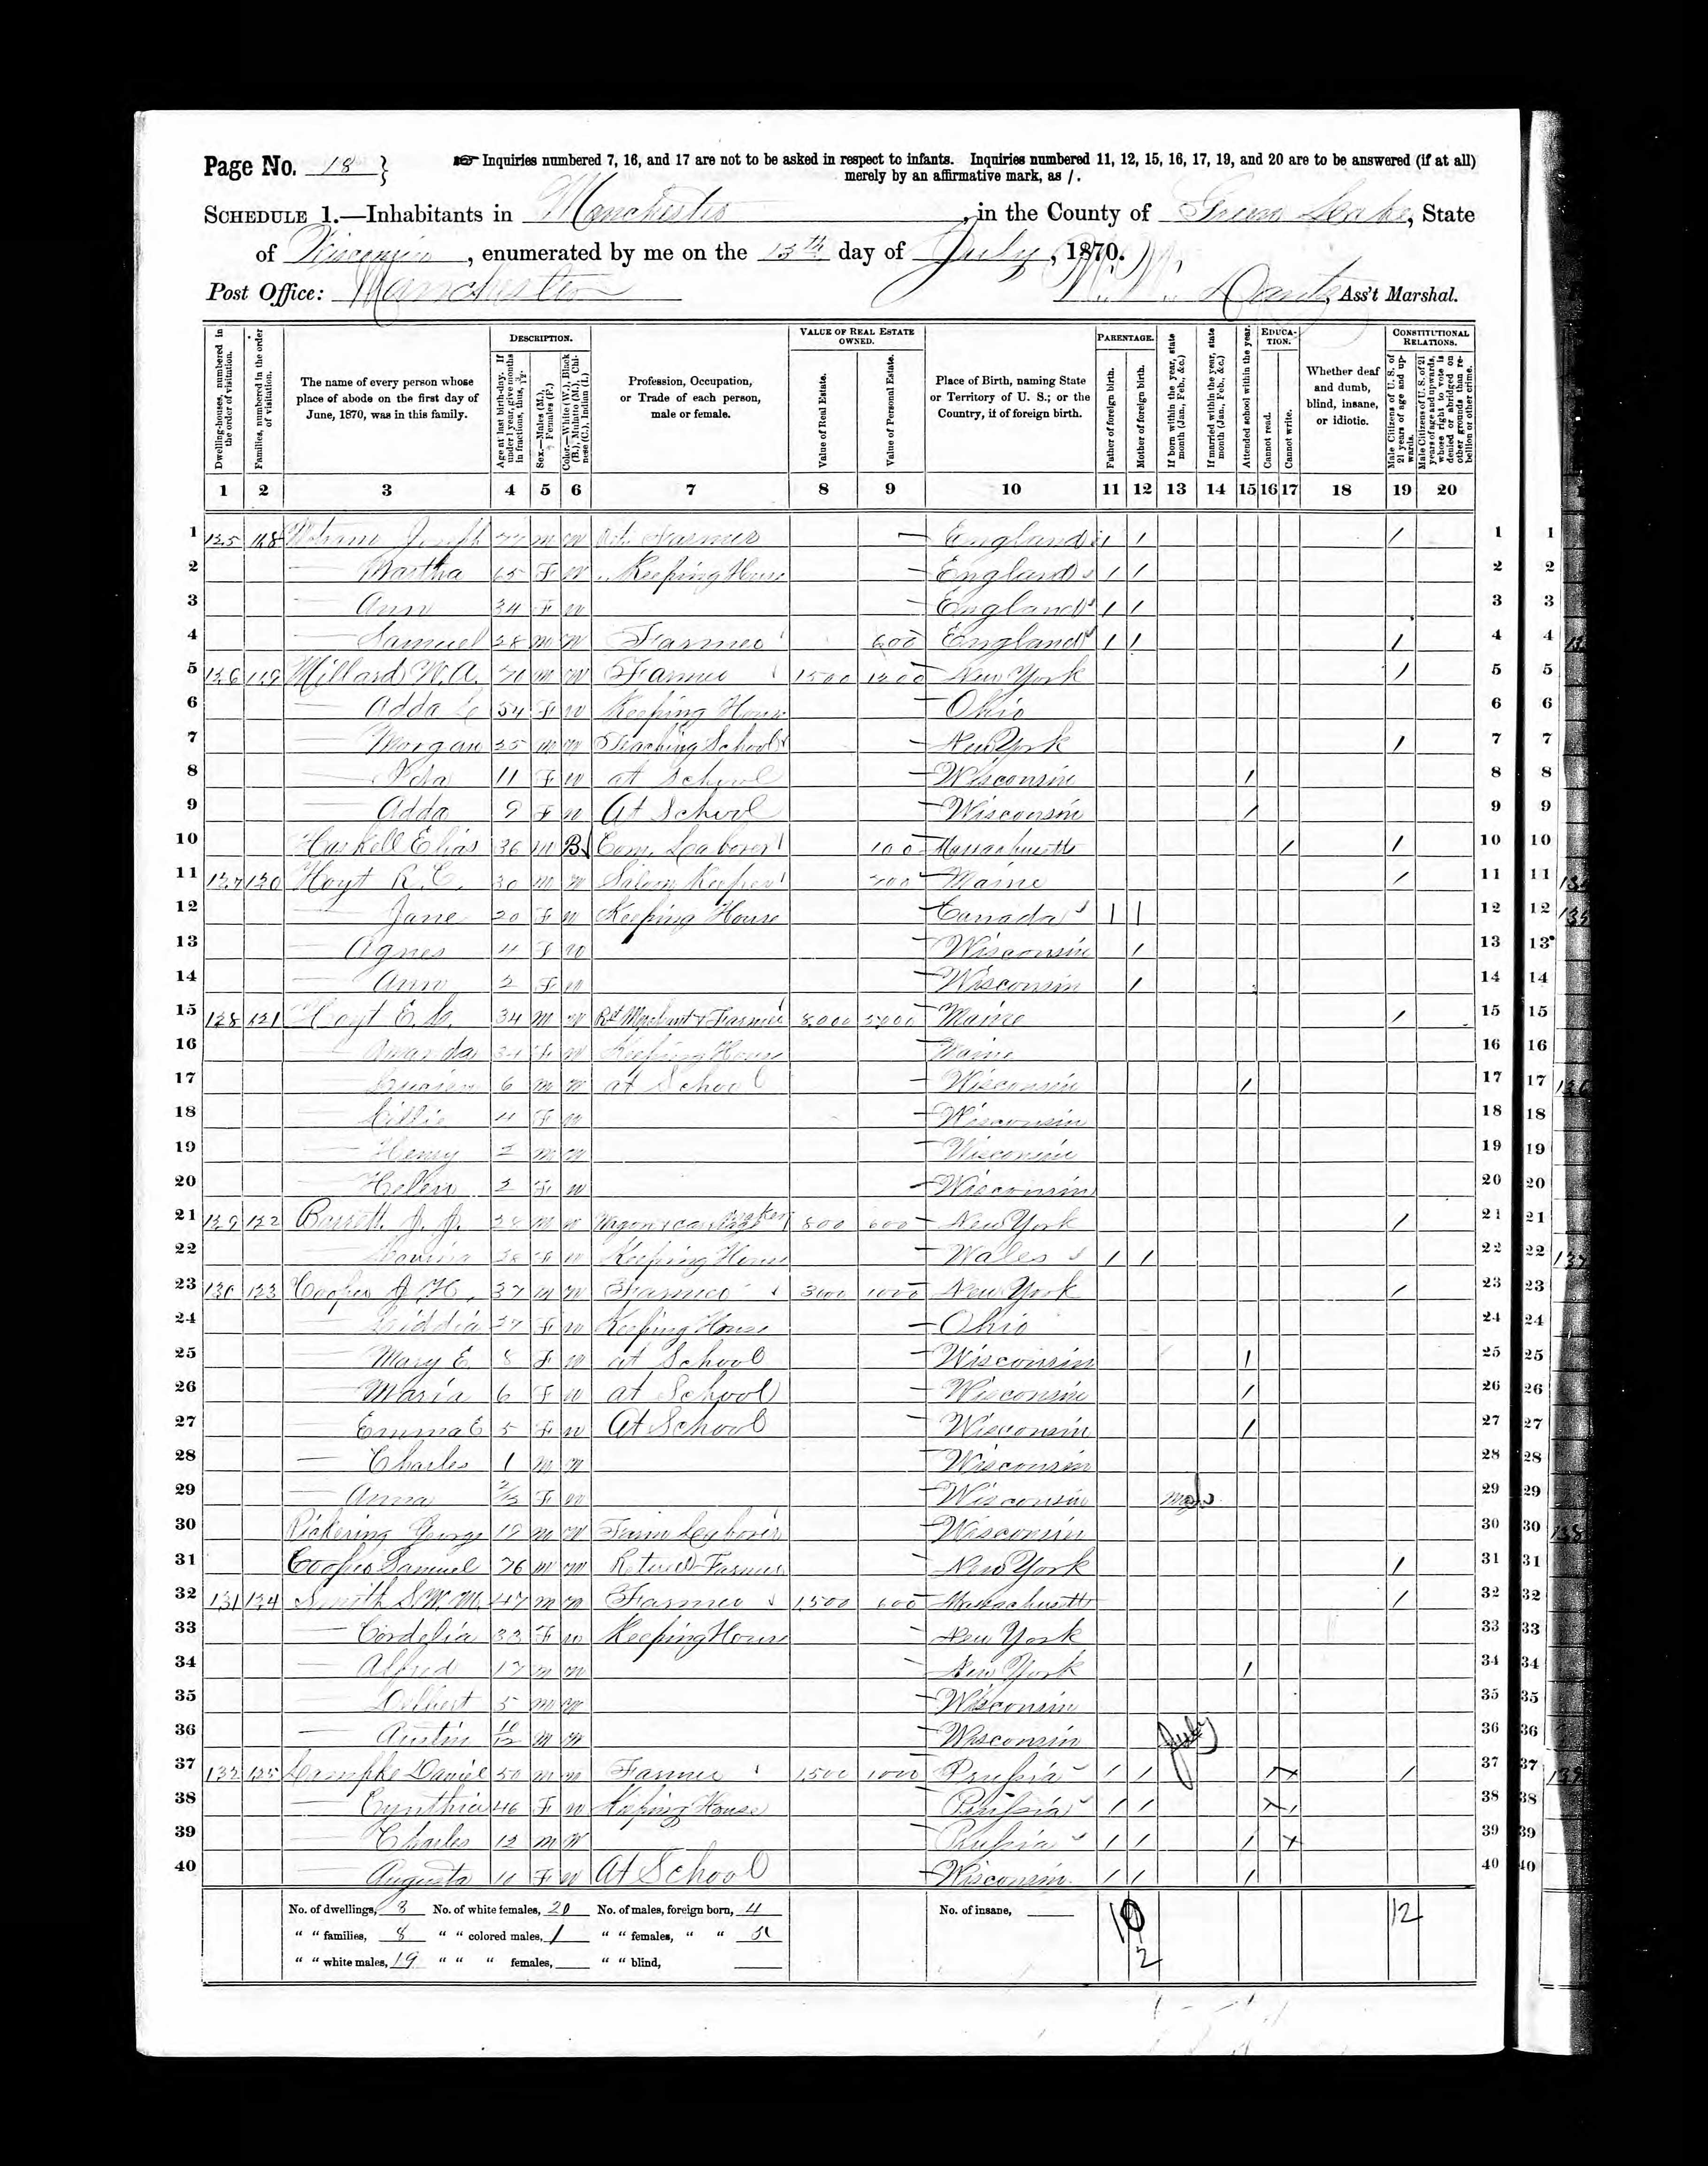 Page No. 18 }
☞ Inquiries numbered 7, 16, and 17 are not to be asked in respect to infants. Inquiries numbered 11, 12, 15, 16, 17, 19, and 20 are to be answered (if at all)
merely by an affirmative mark, as /.
SCHEDULE 1.—Inhabitants in Manchester, in the County of Green Lake, State
of Wisconsin, enumerated by me on the 13th day of July, 1870.
Post Office: Manchester Ass't Marshal.
Dwelling-houses, numbered in the order of visitation.
Families, numbered in the order of visitation.
The name of every person whose place of abode on the first day of June, 1870, was in this family.
DESCRIPTION.
Age at last birth-day. If under 1 year, give months in fractions, thus, 3/12.
Sex.—Males (M.), Females (F.)
Color.—White (W.), Black (B.), Mulatto (M.), Chinese (C.), Indian (I.)
Profession, Occupation, or Trade of each person, male or female.
VALUE OF REAL ESTATE OWNED.
Value of Real Estate.
Value of Personal Estate.
Place of Birth, naming State or Territory of U. S.; or the Country, if of foreign birth.
PARENTAGE.
Father of foreign birth.
Mother of foreign birth.
If born within the year, state month (Jan., Feb., &c.)
If married within the year, state month (Jan., Feb., &c.)
Attended school within the year.
EDUCATION.
Cannot read.
Cannot write.
Whether deaf and dumb, blind, insane, or idiotic.
CONSTITUTIONAL RELATIONS.
Male Citizens of U. S. of 21 years of age and upwards.
Male Citizens of U. S. of 21 years of age and upwards, whose right to vote is denied or abridged on other grounds than rebellion or other crime.
1 2 3 4 5 6 7 8 9 10 11 12 13 14 15 16 17 18 19 20
1 125 118 Joseph 77 M W Farmer — England / / / 1
2 — Martha 65 F W Keeping House — England / / 2
3 — Ann 34 F W — England / / 3
4 — Samuel 28 M W Farmer 600 England / / / 4
5 126 119 Millard W. A. 70 M W Farmer 1500 1200 New York / 5
6 — Adda 54 F W Keeping House — Ohio 6
7 — Morgan 25 M W Teaching School — New York / 7
8 — Ida 11 F W at School — Wisconsin / 8
9 — Adda 9 F W At School — Wisconsin / 9
10 Haskell Elias 36 M B Com. Laborer 100 Massachusetts / / 10
11 127 120 Hoyt R. C. 30 M W Saloon Keeper Maine / 11
12 — Jane 20 F W Keeping House — Canada / / 12
13 — Agnes 4 F W — Wisconsin / 13
14 — Ann 2 F W — Wisconsin / 14
15 128 121 Hoyt E. 34 M W Rt Merchant & Farmer 8000 Maine / 15
16 — Amanda F W Keeping House — Maine 16
17 — 6 M W at School — Wisconsin / 17
18 — Lillie 4 F W — Wisconsin 18
19 — Henry 2 M W — Wisconsin 19
20 — Helen 2 F W — Wisconsin 20
21 129 122 J. J. M W Wagon & Carriage maker 800 600 New York / 21
22 — F W Keeping House — Wales / / 22
23 130 123 Cooper J. H. 37 M W Farmer 3000 1000 New York / 23
24 — Liddia 37 F W Keeping House — Ohio 24
25 — Mary E 8 F W at School — Wisconsin / 25
26 — Maria 6 F W at School — Wisconsin / 26
27 — Emma E 5 F W At School — Wisconsin / 27
28 — Charles 1 M W — Wisconsin 28
29 — Anna 2/12 F W — Wisconsin May 29
30 Pickering George 19 M W Farm Laborer — Wisconsin 30
31 Cooper Samuel 76 M W Retired Farmer — New York / 31
32 131 124 Smith S. W. M. 47 M W Farmer 1500 600 Massachusetts / 32
33 — Cordelia 33 F W Keeping House — New York 33
34 — Alfred 17 M W — New York / 34
35 — Delbert 5 M W — Wisconsin 35
36 — Austin 10/12 M W — Wisconsin July 36
37 132 125 Daniel 50 M W Farmer 1500 1000 Prussia / / / 37
38 — Cynthia 46 F W Keeping House Prussia / / 38
39 — Charles 12 M W Prussia / / / 39
40 — Augusta 10 F W At School — Wisconsin / / / 40
No. of dwellings, 8 No. of white females, 20 No. of males, foreign born, 4 No. of insane, 10 12
" " families, 8 " " colored males, 1 " " females, " " 5
" " white males, 19 " " " females, " " blind, 12